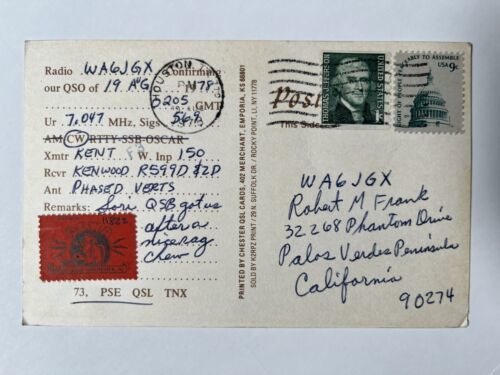 Radio WA6JGX Confirming
our QSO of 19 AUG 1978
5205 GMT
Ur 7.047 MHz, Sigs 569
AM-CW-RTTY-SSB-OSCAR
Xmtr KENT W. Inp 150
Rcvr KENWOOD R599D
Ant PHASED VERTS
Remarks: Sori QSB got us
after a
nice rag
chew
73, PSE QSL TNX
PRINTED BY CHESTER QSL CARDS, 402 MERCHANT, EMPORIA, KS 66801
SOLD BY K2RPZ PRINT / 29 N. SUFFOLK DR. / ROCKY POINT, LI, NY 11778
HOUSTON
Post
This Side
THOMAS JEFFERSON
UNITED STATES
1¢
RIGHT OF PEOPLE PEACEABLY TO ASSEMBLE
USA 9c
WA6JGX
Robert M Frank
32268 Phantom Drive
Palos Verdes Peninsula
California
90274